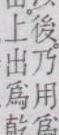 後。乃用爲
上出爲乾